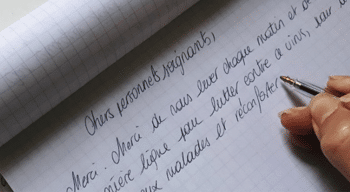 Chers personnels soignants,
Merci. Merci de vous lever chaque matin et
mière ligne pour lutter contre ce virus, pour
eux malades et réconforter